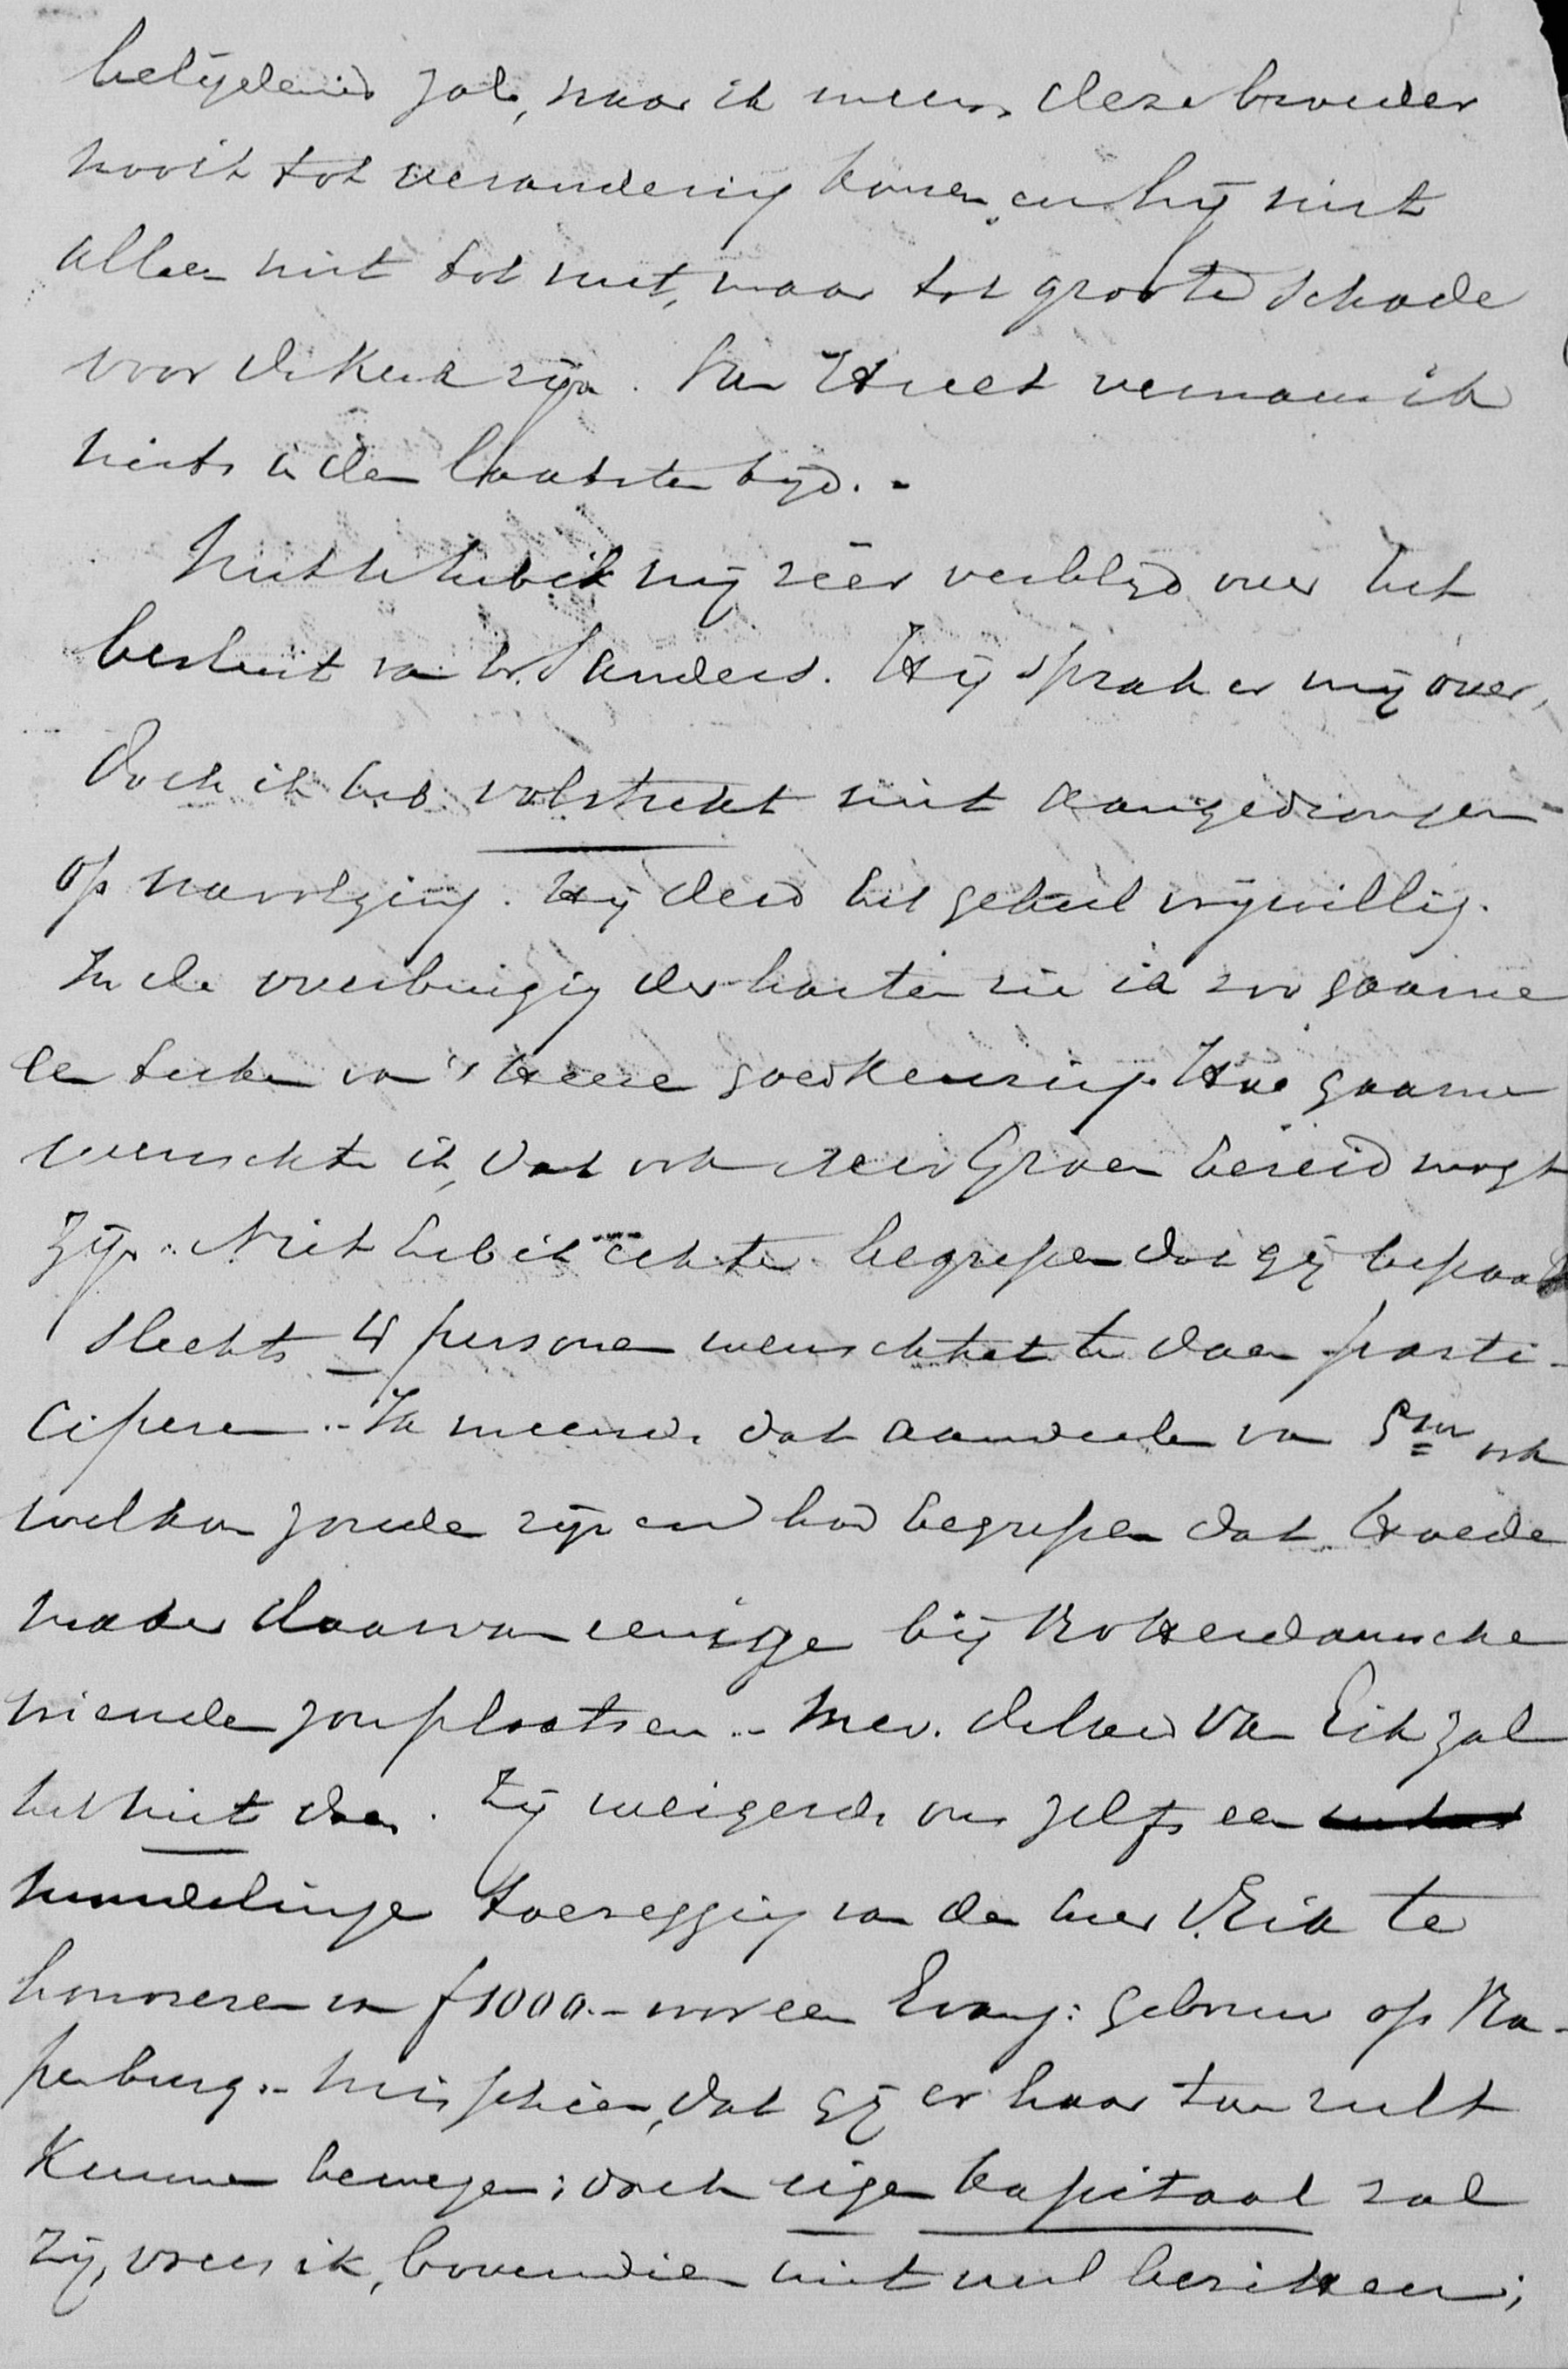 belijdenis zal, naar ik meen, deze broeder
nooit tot verandering komen, en hij niet
alleen niet tot nut, maar tot groote schade
voor de Kerk zijn. Van Huet vernam ik
niets in den laatsten tijd. -
heb ik mij zéér verblijd over het
besluit van br. Sanders. Hij sprak er mij over,
doch ik heb volstrekt niet aangedrongen
op navolging. Hij deed het geheel vrijwillig.
In de overbuiging der harten zie ik zoo gaarne
een teeken van 's Heere goedkeuring. Hoe gaarne
wenschte ik, dat ook Groen bereid mogt
zijn. Niet heb ik echter begrepen dat gij bepaald
slechts 4 personen wenschtet te doen parti-
ciperen. - Ik meende dat aandeelen van ook
welkom zouden zijn en had begrepen dat Hoede
maker daarvan eenige bij Rotterdamsche
vrienden zou plaatsen. - Mev. van Eik zal
het niet doen. Zij weigerde ons zelfs een
mondelinge toezegging van den heer v. Eik te
honoreren van f 1000.- voor een Evang: gebouw op Ka-
penburg. - Misschien, dat gij er haar toe zult
Kunnen bewegen; doch eigen kapitaal zal
zij, vrees ik, bovendien niet veel bezitten;